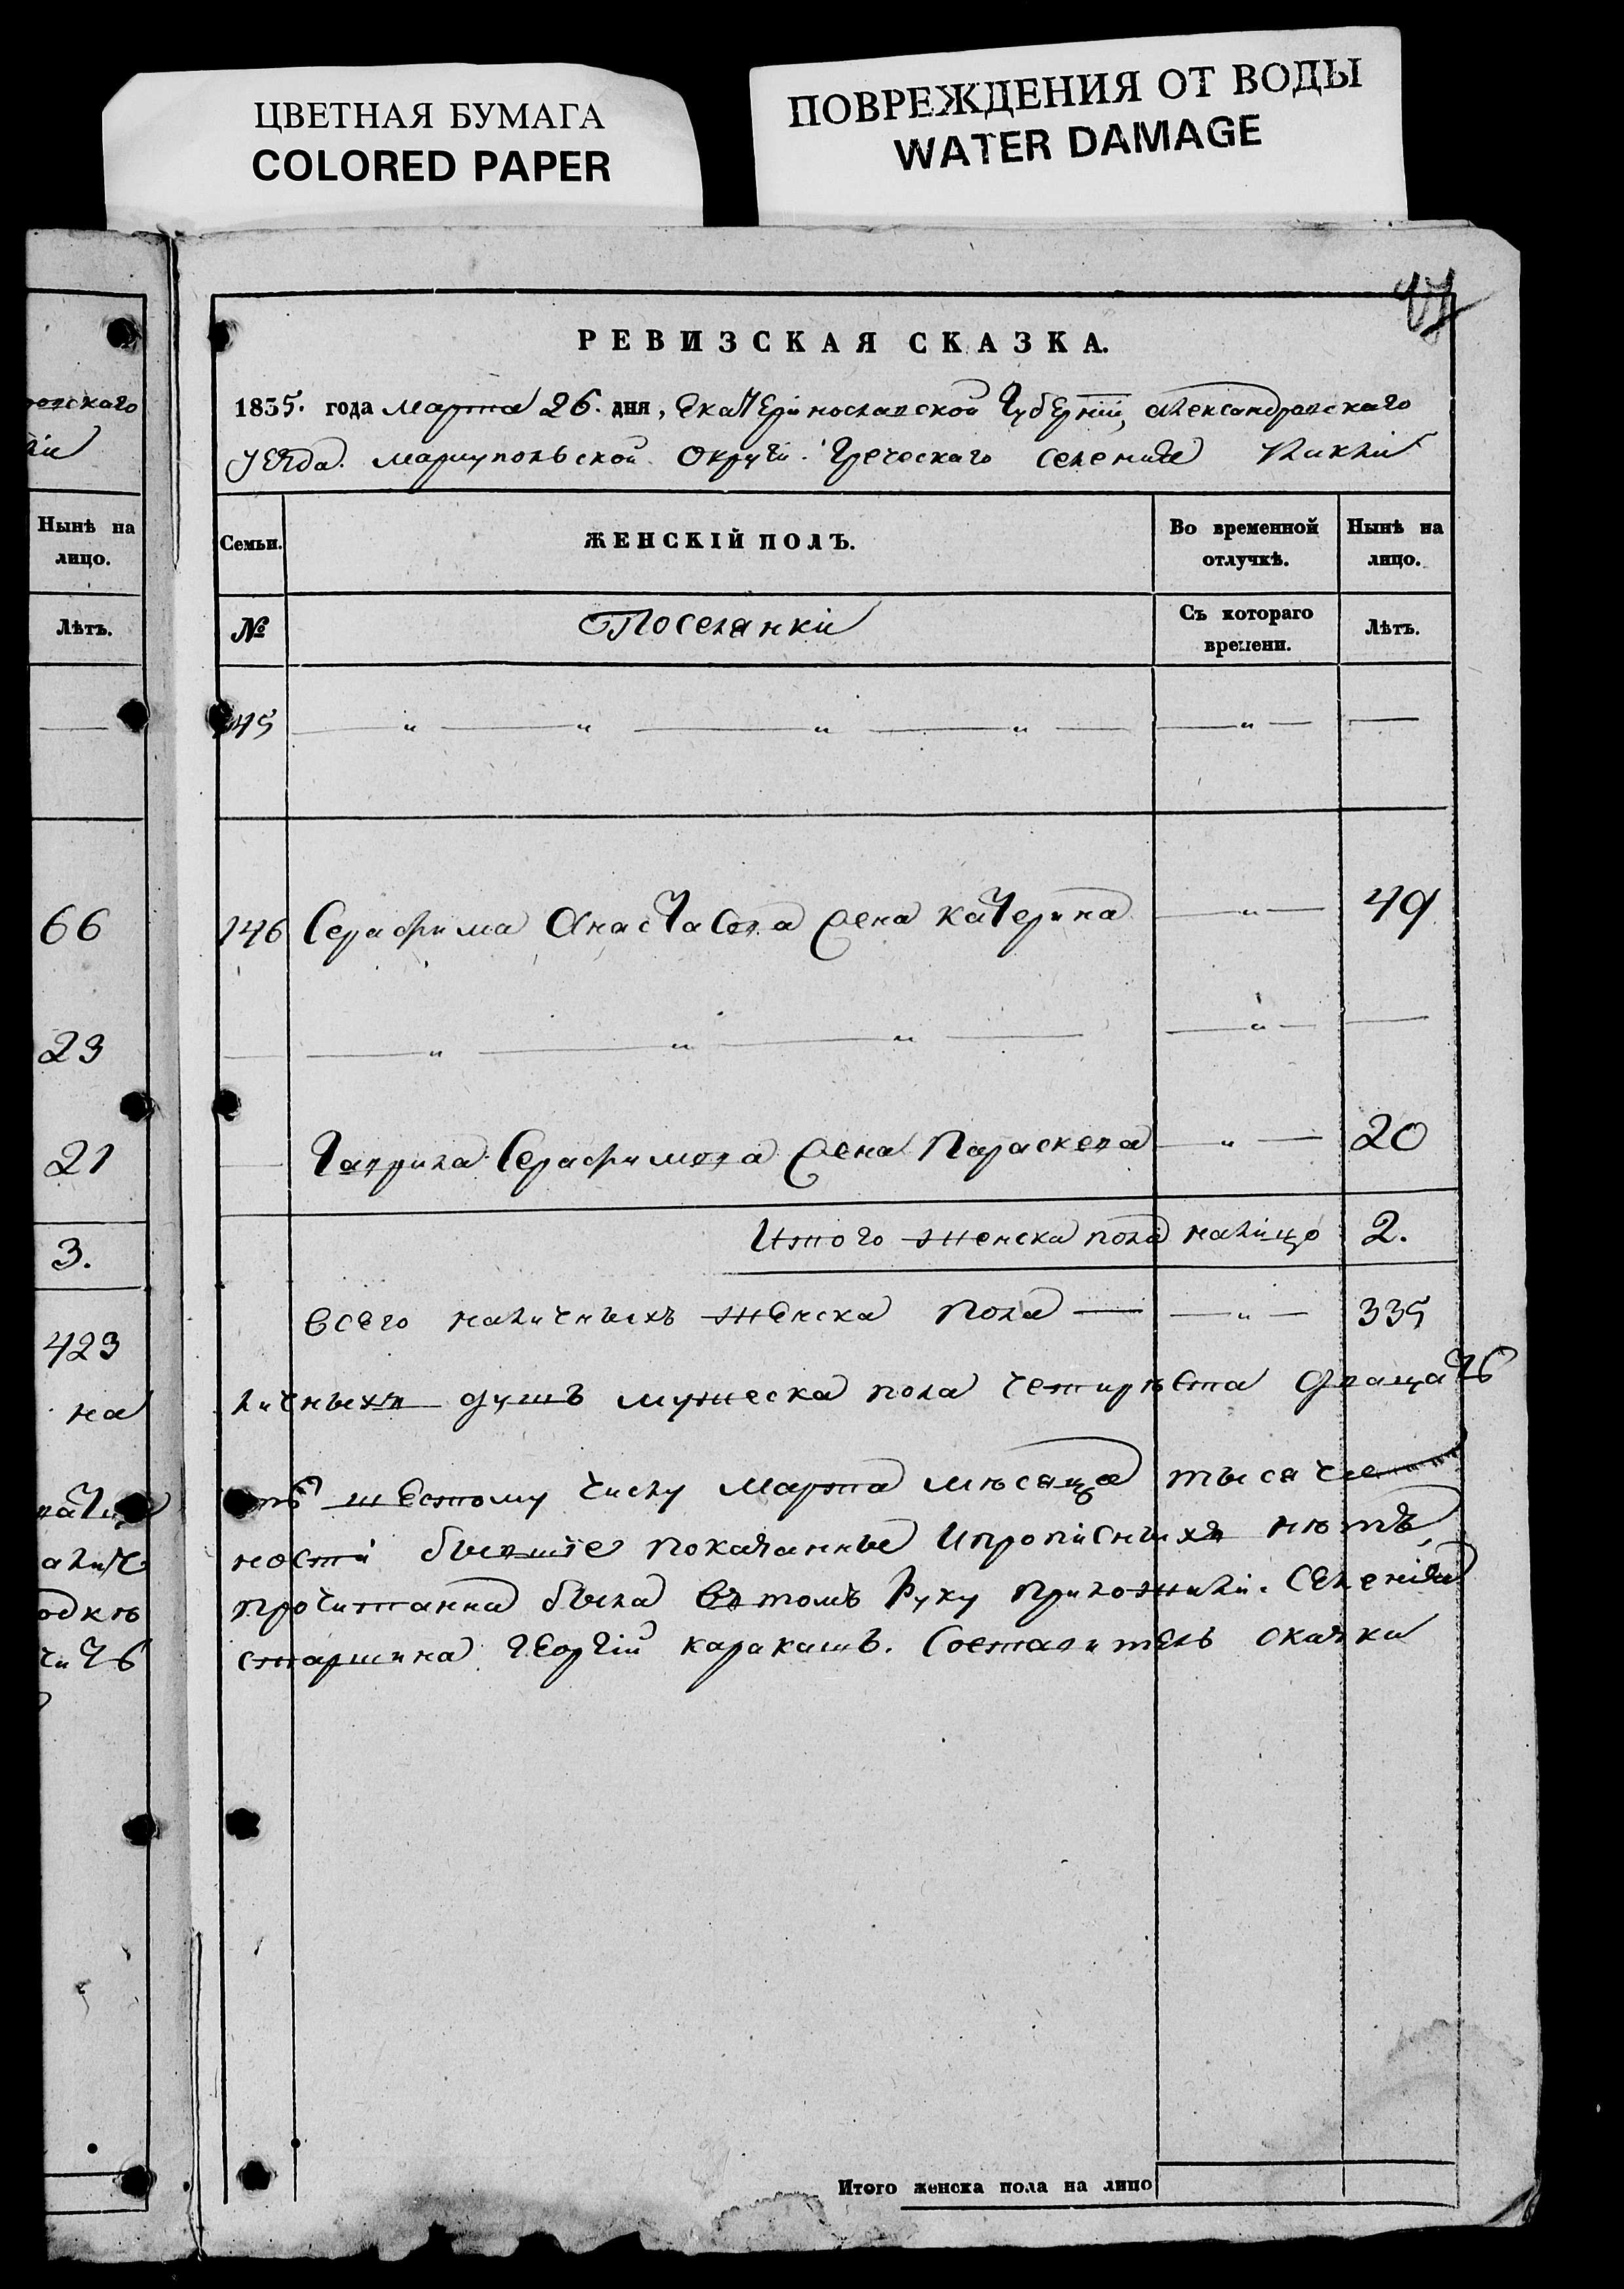 ЦВЕТНАЯ БУМАГА
COLORED PAPER
ПОВРЕЖДЕНИЯ ОТ ВОДЫ
WATER DAMAGE
РЕВИЗСКАЯ СКАЗКА.
1835. года марта 26. дня, Екатеринославской Губерніи, Александровскаго
уезда. мариупольской округи. Греческаго селения
Нынѣ на лицо.
Лѣтъ.
66
23
21
3.
423
на
Семьи.
ЖЕНСКІЙ ПОЛЪ.
Во временной отлучкѣ.
Нынѣ на лицо.
№
Поселянки
Съ котораго времени.
Лѣтъ.
145
146 Серафима Анастасова жена катерина 49
Гаврила Серафимова жена Параскева 20
Итого женска пола налицо 2.
всего наличныхъ женска пола 335
личныхъ душъ мужеска пола четырѣста двацать
шестому числу марта мѣсяца тысяча
ности бывшіе показанные ипрописныхъ нѣтъ,
прочитанна была въ томъ руку приложили. Селенія
старшина Георгій каракашъ. Составитель сказки
Итого женска пола на лицо